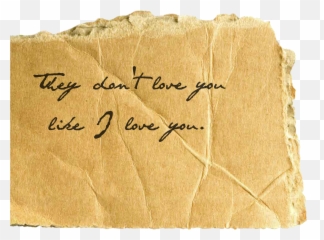 They don't love you
like I love you.